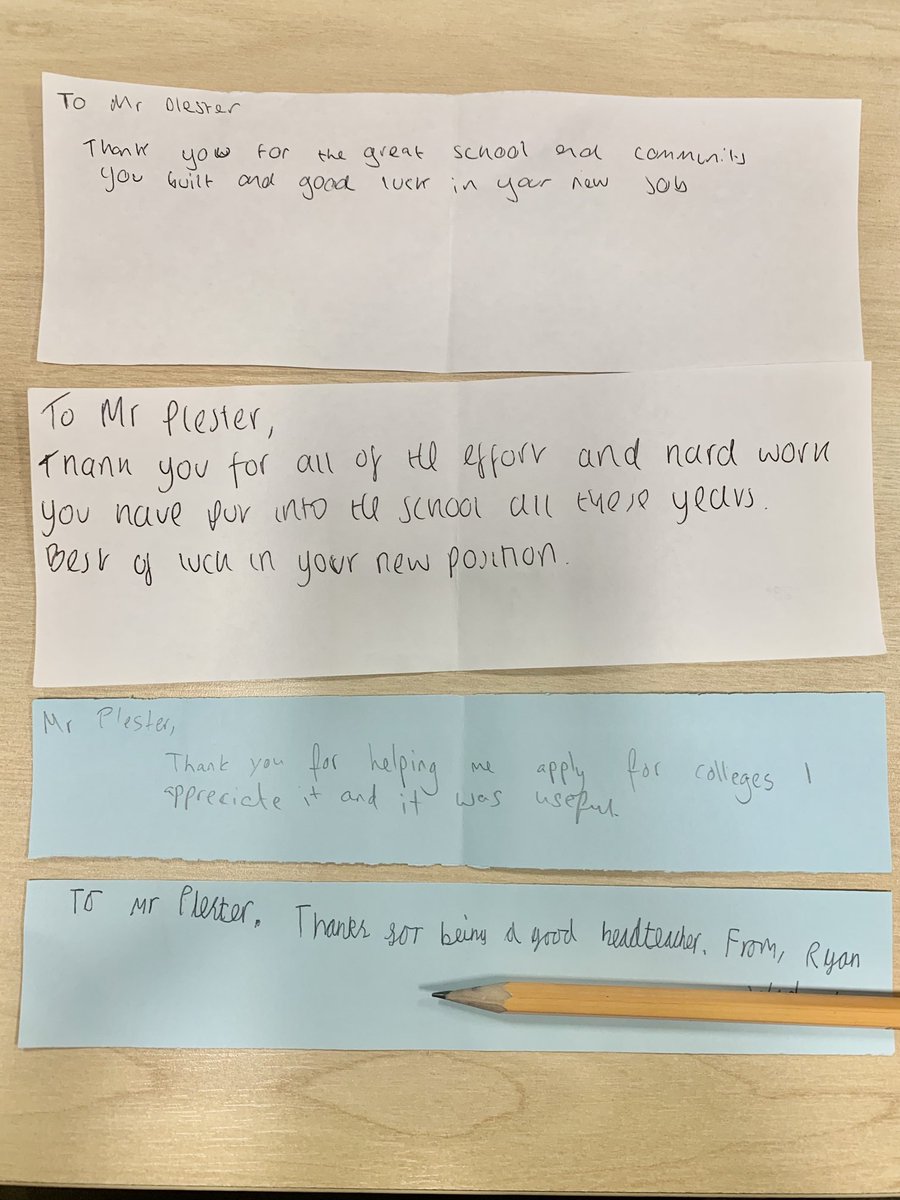 To Mr Plester
Thank you for the great school and community
you built and good luck in your new job
To Mr Plester,
Thank you for all of the effort and hard work
you have put into the school all these years.
Best of luck in your new position.
Mr Plester,
Thank you for helping me apply for colleges I
appreciate it and it was useful.
To Mr Plester. Thanks for being a good headteacher. From, Ryan